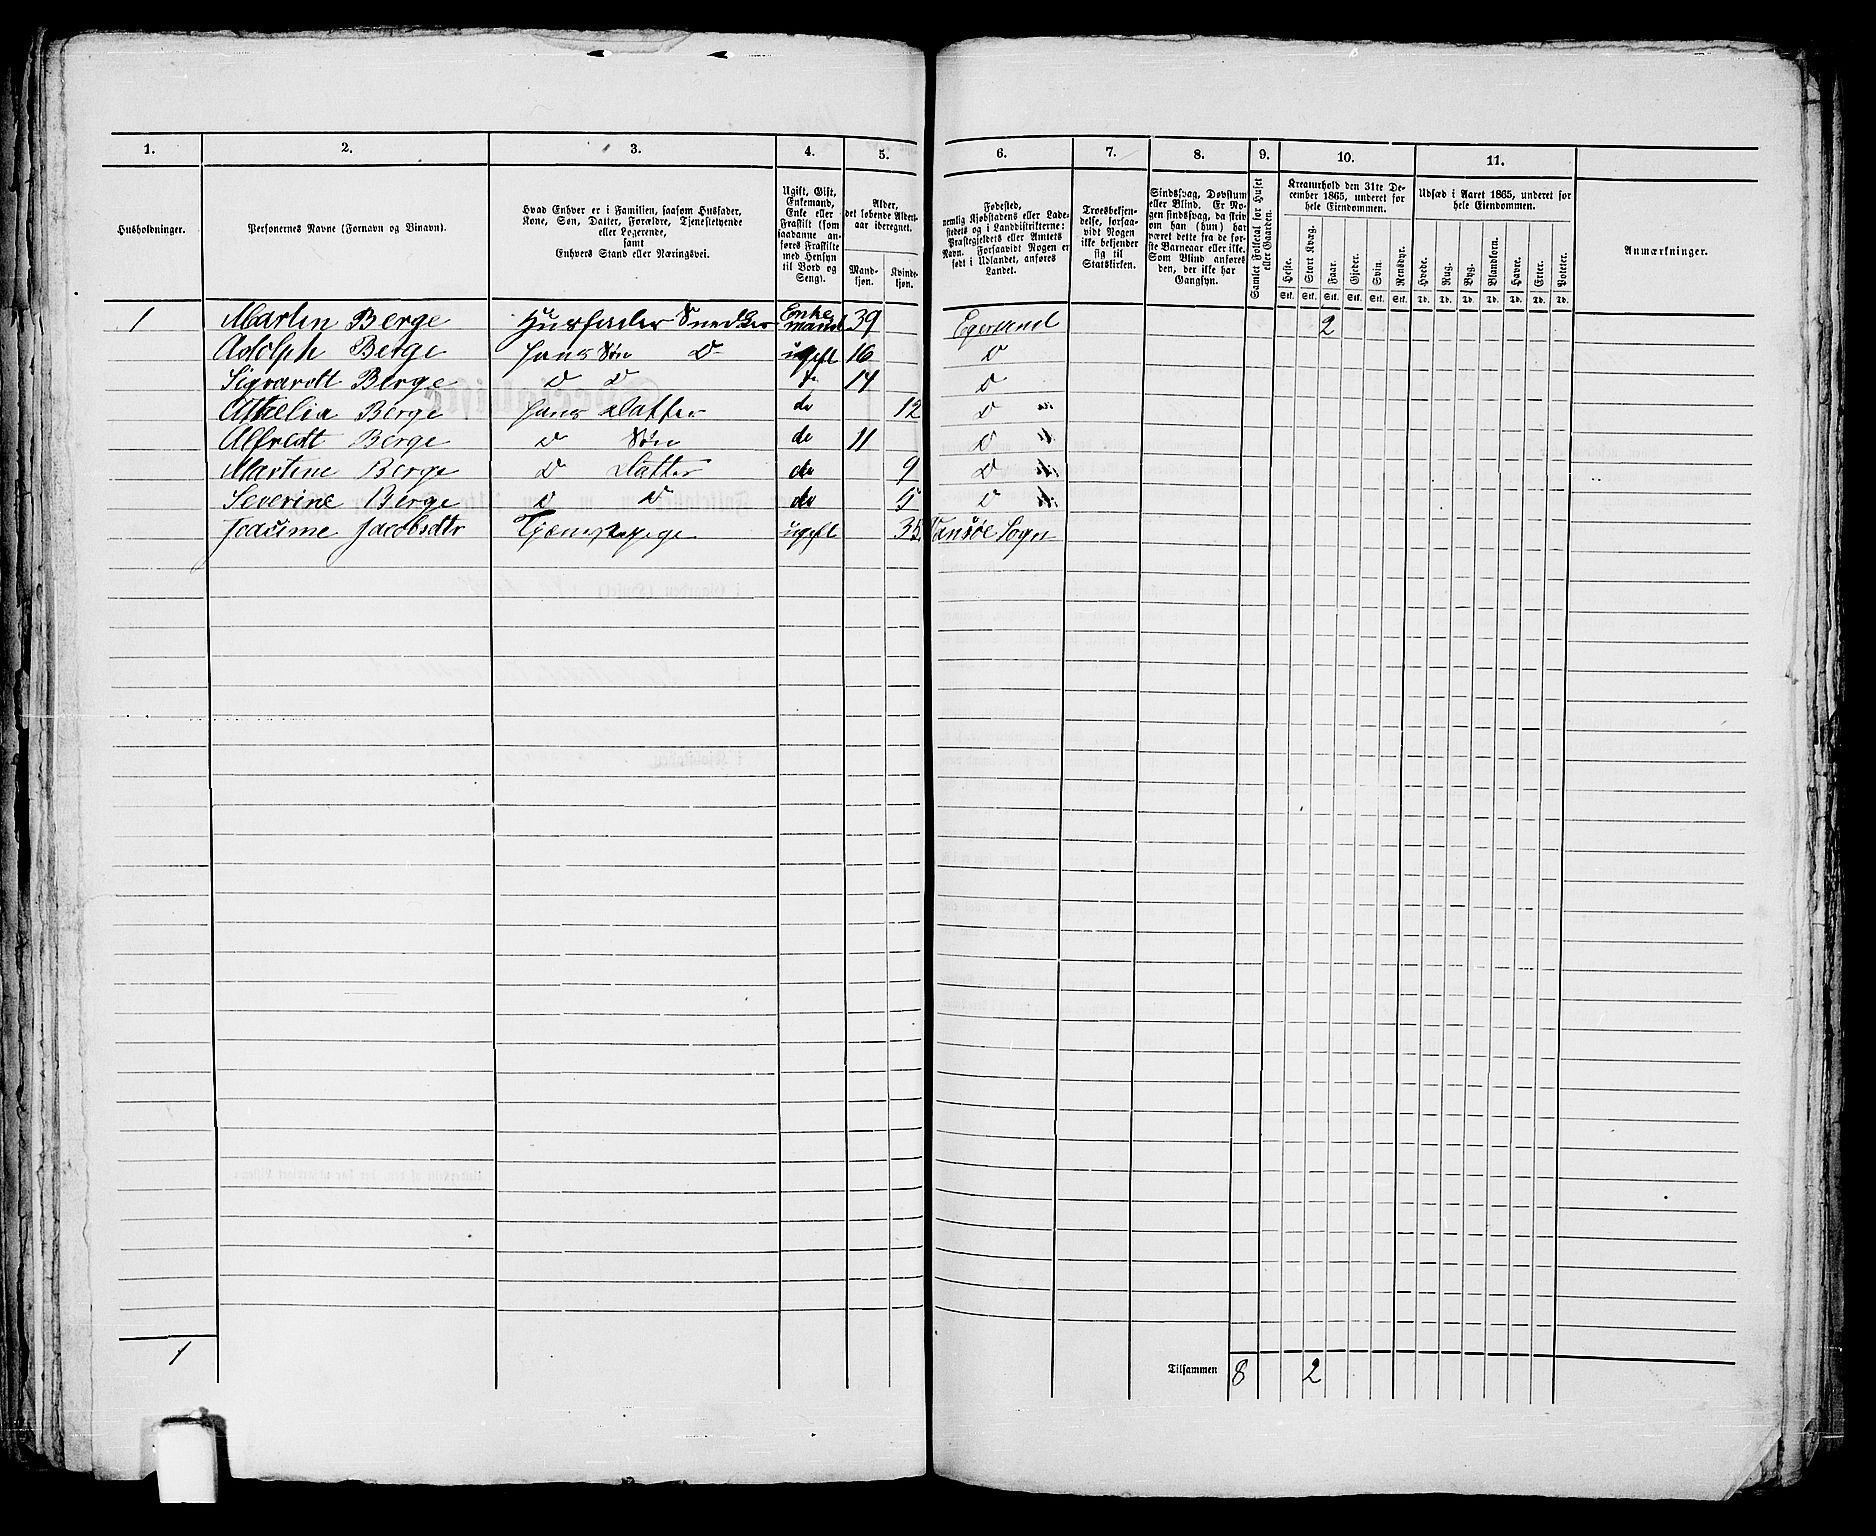 1. 2. 3. 4. 5. 6. 7. 8. 9. 10. 11.
Husholdninger.
Personernes Navne (Fornavn og Binavn).
Hvad Enhver er i Familien, saasom Husfader,
Kone, Søn, Datter, Forældre, Tjenestetyende
eller Logerende,
samt
Enhvers Stand eller Næringsvei.
Ugift, Gift,
Enkemand,
Enke eller
Fraskilt (som
saadanne an-
føres Fraskilte
med Hensyn
til Bord og
Seng).
Alder,
det løbende Alders-
aar iberegnet.
Mand-
kjøn.
Kvinde-
kjøn.
Fødested,
nemlig Kjøbstadens eller Lade-
stedets og i Landdistrikterne:
Præstegjeldets eller Amtets
Navn. Forsaavidt Nogen er
født i Udlandet, anføres
Landet.
Troesbekjen-
delse, forsaa-
vidt Nogen
ikke bekjender
sig til
Statskirken.
Sindssvag, Døvstum
eller Blind. Er No-
gen sindssvag, da skriv
om han (hun) har
været dette fra de før-
ste Barneaar eller ikke.
Som Blind anføres
den, der ikke har
Gangsyn.
Samlet Folketal for Huset
eller Gaarden.
Kreaturhold den 31te De-
cember 1865, underet for
hele Eiendommen.
Heste. Stort Kvæg. Faar. Gjeder. Svin. Rensdyr.
Stk. Stk. Stk. Stk. Stk. Stk.
Udsæd i Aaret 1865, underet for
hele Eiendommen.
Hvede. Rug. Byg. Blandkorn. Havre. Erter. Poteter.
Td. Td. Td. Td. Td. Td. Td.
Anmærkninger.
1 Martin Berge Husfader Snedker Enkemand 39 Egersund 2
Adolph Berge Hans Søn D ugift 16 D
Sigvardt Berge D D do 14 D
Berge Hans Datter do 12 D
Alfredt Berge D Søn do 11 D
Martine Berge D Datter do 9 D
Severine Berge D D do 5 D
Jacobsdtr Tjenestepige ugift 35 Sogn
1 Tilsammen 8 2